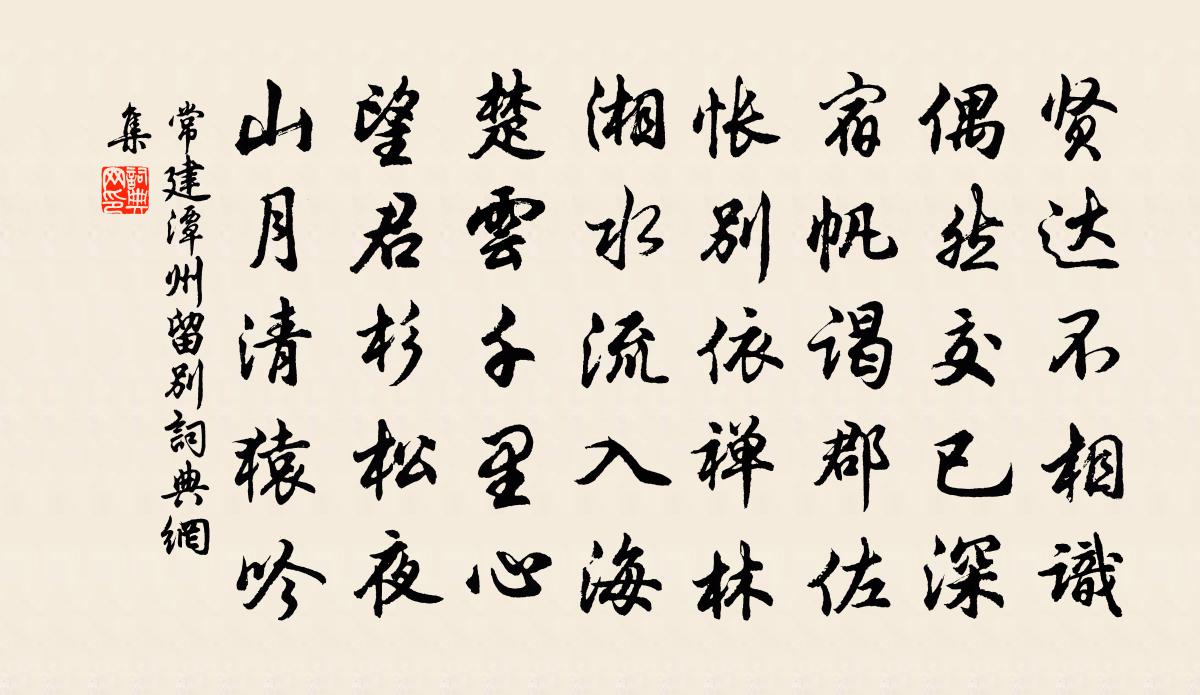 贤达不相識
偶然交已深
宿帆谒郡佐
怅别依禅林
湘水流入海
楚雲千里心
望君杉松夜
山月清猿吟
常建潭州留别詞典網
集
詞典網印